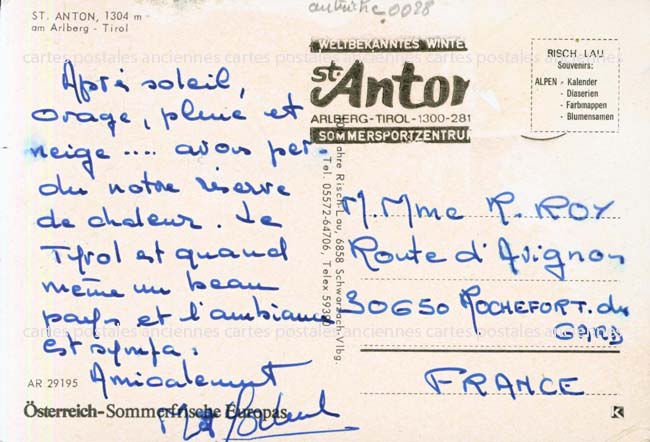 autriche 0088
ST. ANTON, 1304 m -
am Arlberg - Tirol
WELTBEKANNTES WINTE
St. Anton
ARLBERG-TIROL-1300-281
SOMMERSPORTZENTRU
RISCH-LAU
Souvenirs:
ALPEN - Kalender
- Diaserien
- Farbmappen
- Blumensamen
cartes postales anciennes cartes postales anciennes cartes postales anciennes
Après soleil,
orage, pluie et
neige .... avons per-
du notre réserve
de chaleur. Le
Tyrol est quand
même un beau
pays et l'ambiance
est sympa.
Amicalement
ahre Risch-Lau, 6858 Schwarzach-Vlbg.
Tel. 05572-64706, Telex 593
M. Mme R. ROY
Route d'Avignon
30650 ROCHEFORT. du
GARD
FRANCE
cartes postales anciennes cartes postales anciennes cartes postales anciennes
AR 29195
Österreich-Sommerfrische Europas
K